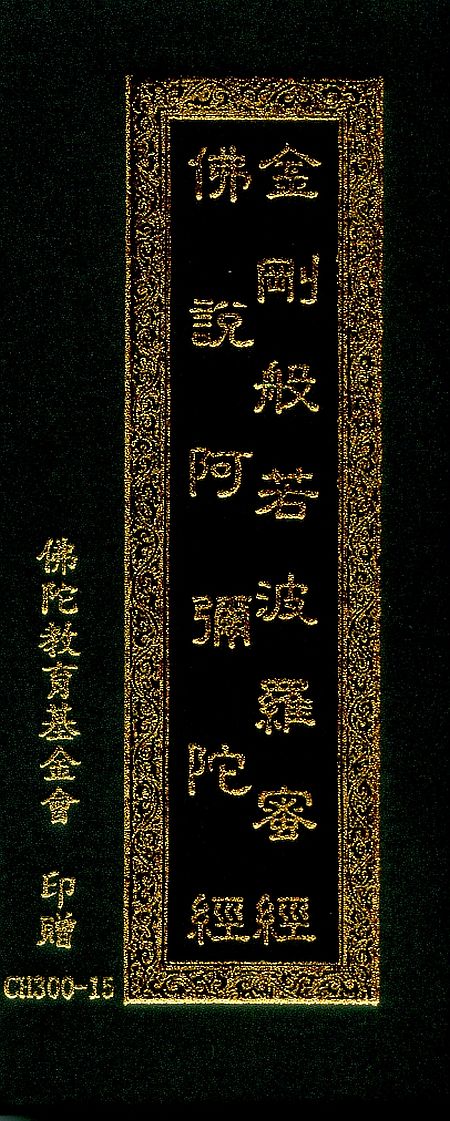 金剛般若波羅蜜經
佛說阿彌陀經
佛陀教育基金會 印贈
CH300-15